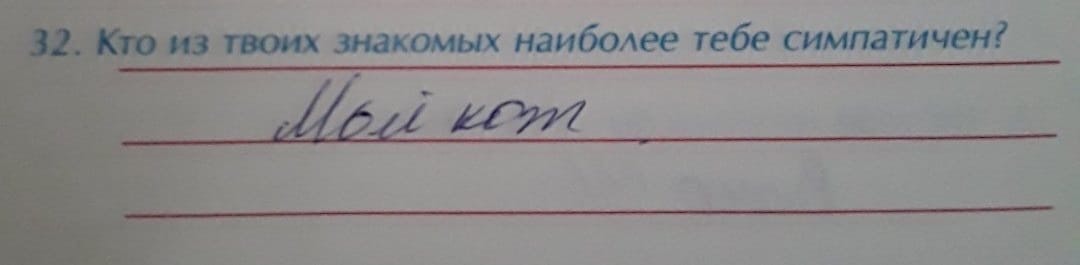 32. Кто из твоих знакомых наиболее тебе симпатичен?
Мой кот